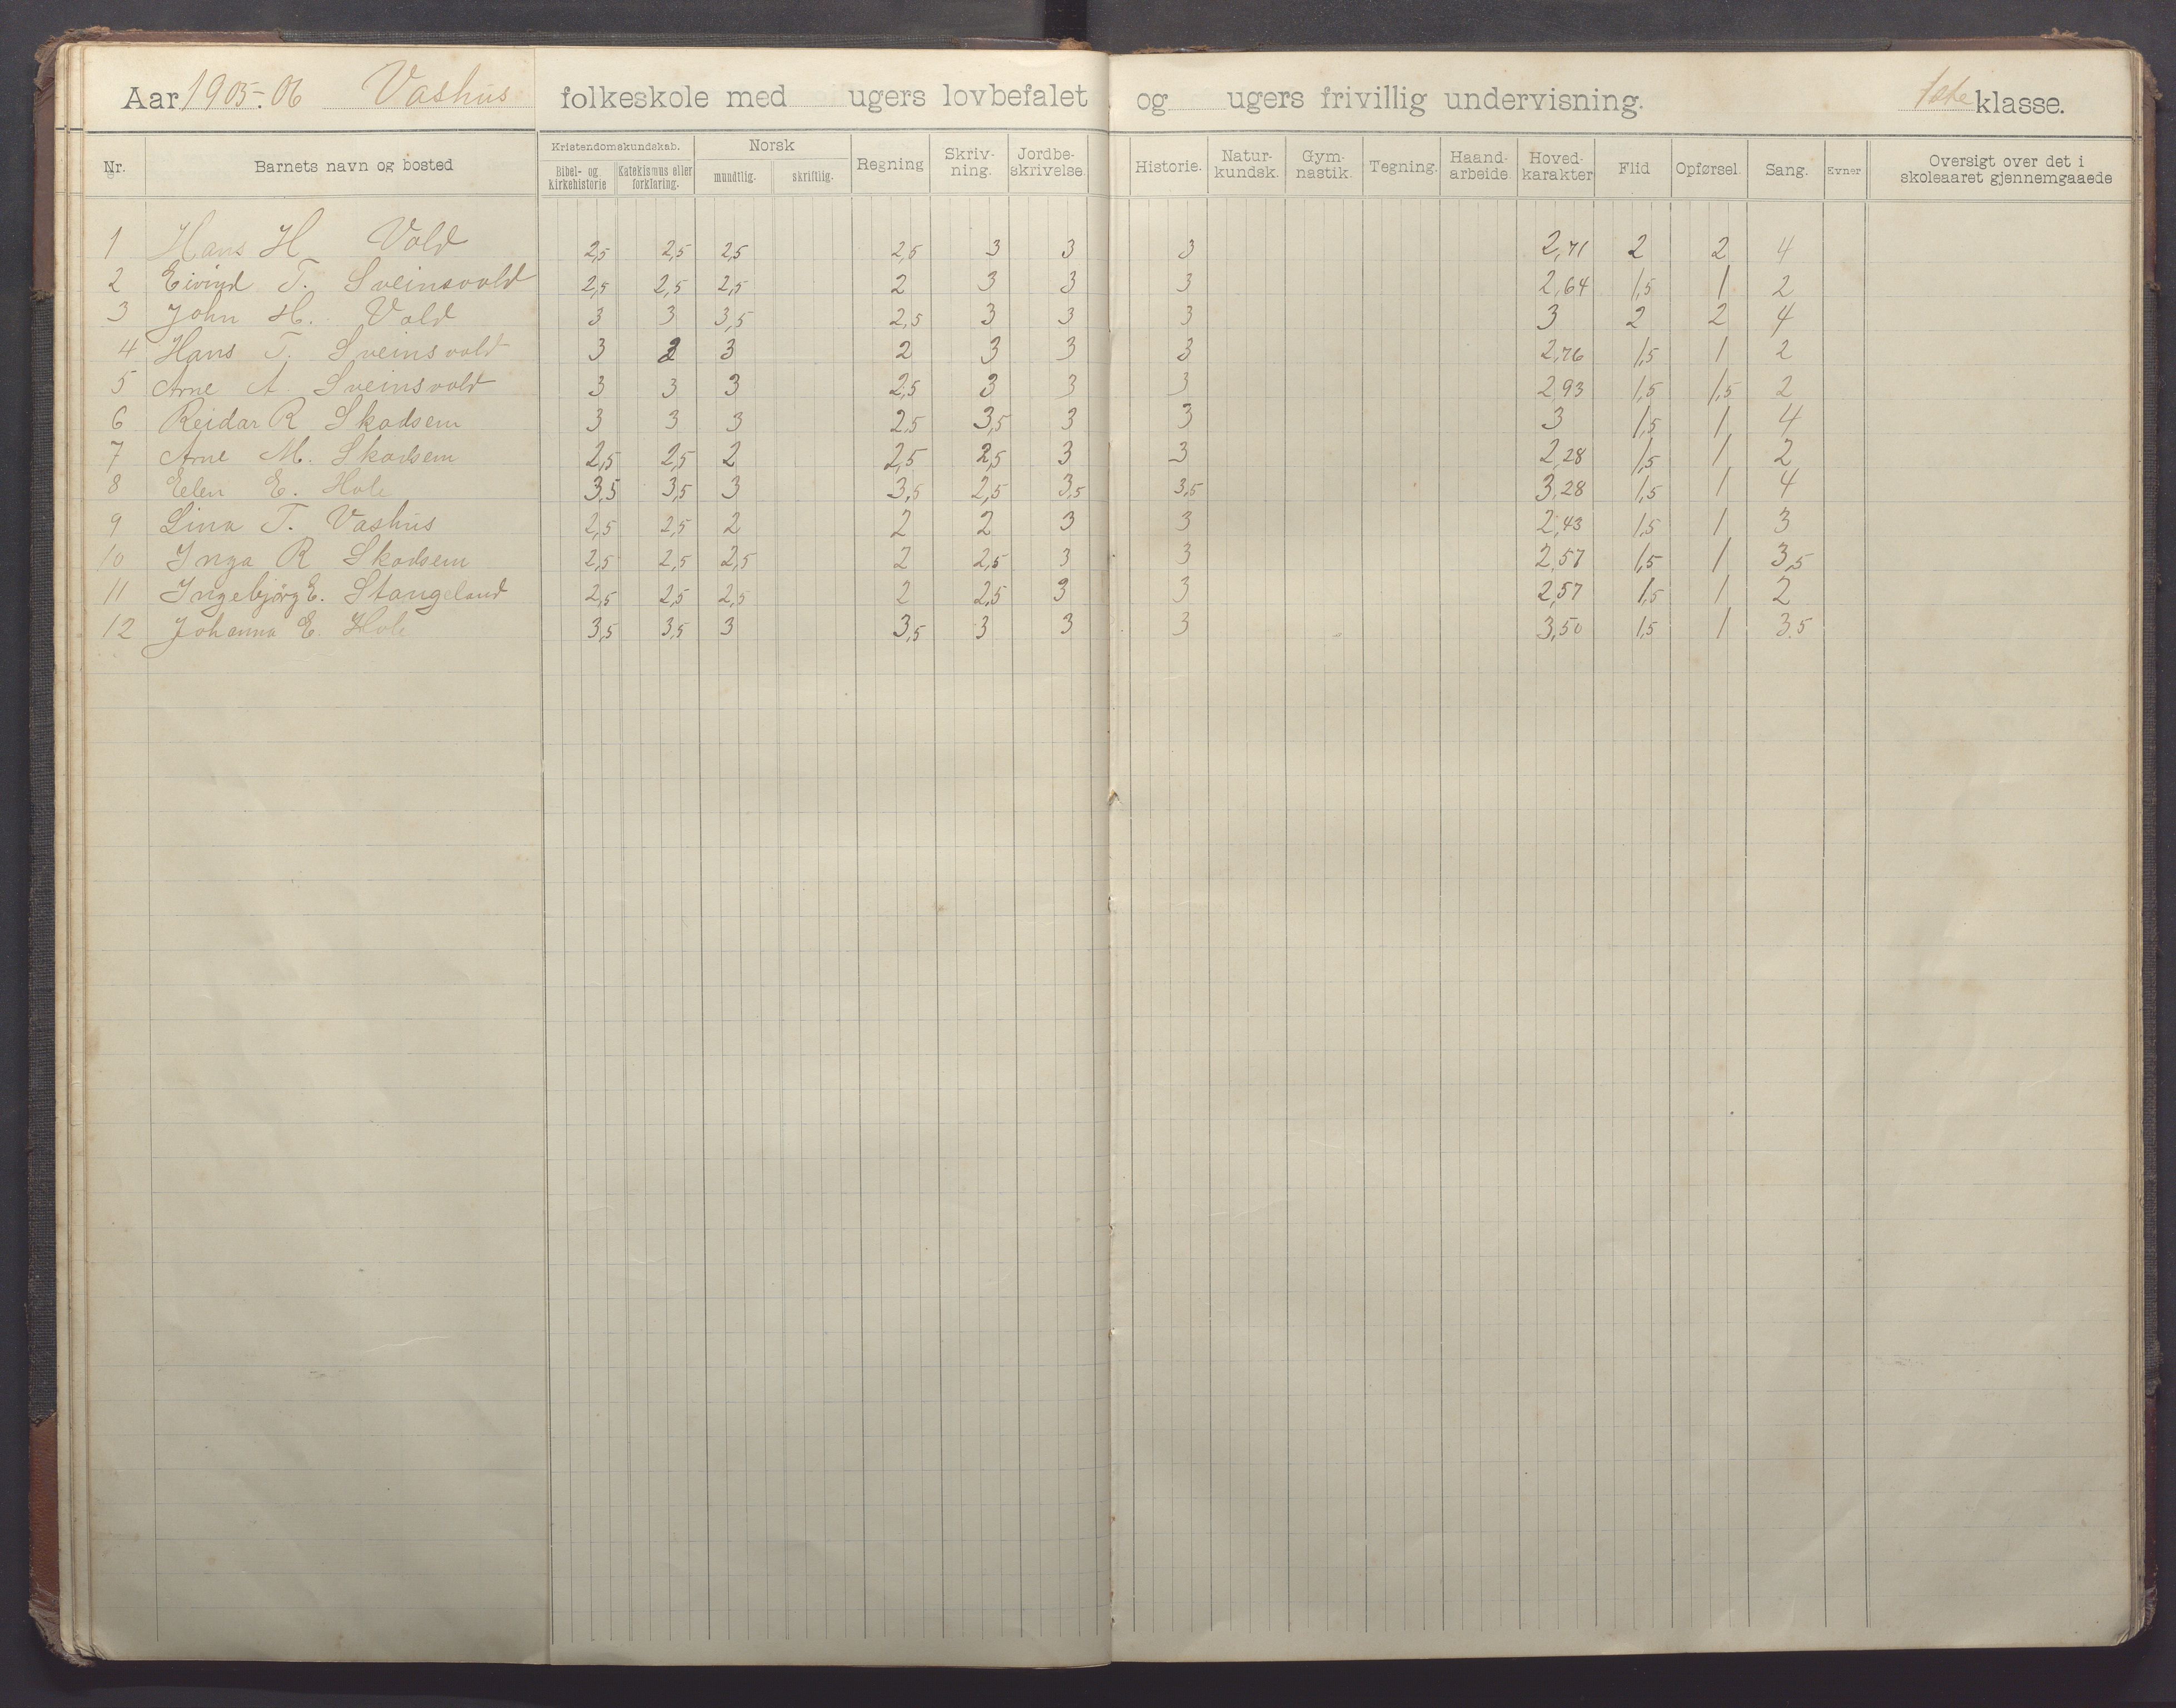 Aar 1905-06 Vashus folkeskole med ugers lovbefalet og ugers frivillig undervisning. 1ste klasse.
Nr. Barnets navn og bosted Kristendomskundskab. Bibel- og kirkehistorie Katekismus eller forklaring. Norsk mundtlig. skriftlig. Regning Skriv-ning. Jordbe-skrivelse. Historie. Natur-kundsk. Gym-nastik. Tegning. Haand-arbeide. Hoved-karakter Flid Opførsel. Sang. Evner Oversigt over det i skoleaaret gjennemgaaede
1 Hans H. Vold 2,5 2,5 2,5 2,5 3 3 3 2,71 2 2 4
2 Eivind T. Sveinsvold 2,5 2,5 2,5 2 3 3 3 2,64 1,5 1 2
3 John H. Vold 3 3 3,5 2,5 3 3 3 3 2 2 4
4 Hans T. Sveinsvold 3 3 2 3 3 3 2,76 1,5 1 2
5 Arne A. Sveinsvold 3 3 3 2,5 3 3 3 2,93 1,5 1,5 2
6 Reidar R Skadsem 3 3 3 2,5 3,5 3 3 3 1,5 1 4
7 Arne M. Skadsem 2,5 2,5 2 2,5 2,5 3 3 2,28 1,5 1 2
8 Elen E. Hole 3,5 3,5 3 3,5 2,5 3,5 3,5 3,28 1,5 1 4
9 Lina T. Vashus 2,5 2,5 2 2 2 3 3 2,43 1,5 1 3
10 Inga R Skadsem 2,5 2,5 2,5 2 2,5 3 3 2,57 1,5 1 3,5
11 Ingebjörg E. Stangeland 2,5 2,5 2,5 2 2,5 3 3 2,57 1,5 1 2
12 Johanna E. Hole 3,5 3,5 3 3,5 3 3 3 3,50 1,5 1 3,5